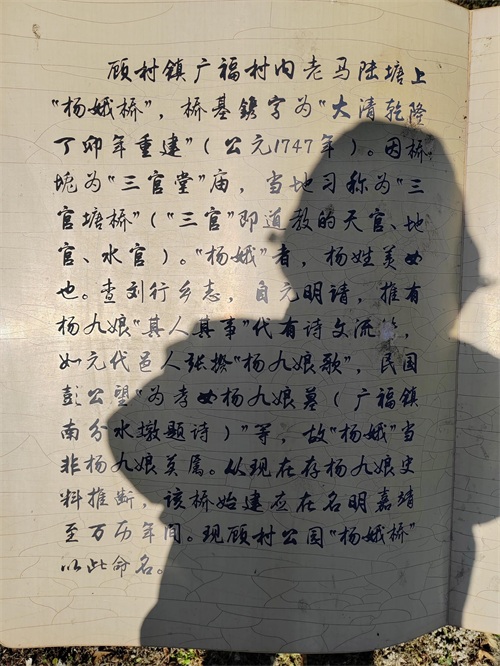 顾村镇广福村内老马陆塘上
“杨娥桥”，桥基镌字为“大清乾隆
丁卯年重建”（公元1747年）。因桥
堍为“三官堂”庙，当地习称为“三
官塘桥”（“三官”即道教的天官、地
官、水官）。“杨娥”者，杨姓美女
也。查刘行乡志，自元明清，推有
杨九娘“真人真事”代有诗文流传，
如元代邑人张揆“杨九娘歌”，民国
彭公望“为孝女杨九娘墓（广福镇
南分水墩题诗）”等，故“杨娥”当
非杨九娘莫属。从现在存杨九娘史
料推断，该桥始建应在名明嘉靖
至万历年间。现顾村公园“杨娥桥”
以此命名。